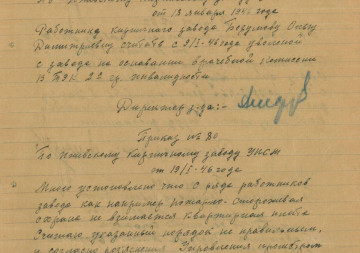 от 18 января 194 года
Работника кирпичного завода
Дмитриевну считать с 9/I-46 года уволеной
с завода на основании врачебной комиссии
ВТЭК 2й гр. инвалидности
Директор з-да:-
Приказ № 80
По кирпичному заводу УПСМ
от 10/I-46 года
Мною установлено что с ряда работников
завода как например пожарно-сторожевая
охрана не взимается квартирная плата
Считаю указанный порядок не правильным,
и согласно Управления